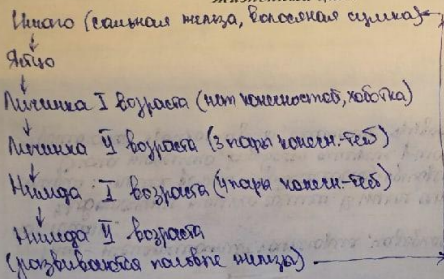 Имаго (сальная железа, волосяная сумка)
Яйцо
Личинка I возраста (нет конечностей, хоботка)
Личинка II возраста (3 пары конечн.-тей)
Нимфа I возраста (4 пары конечн-тей)
Нимфа II возраста
(развиваются половые железы)